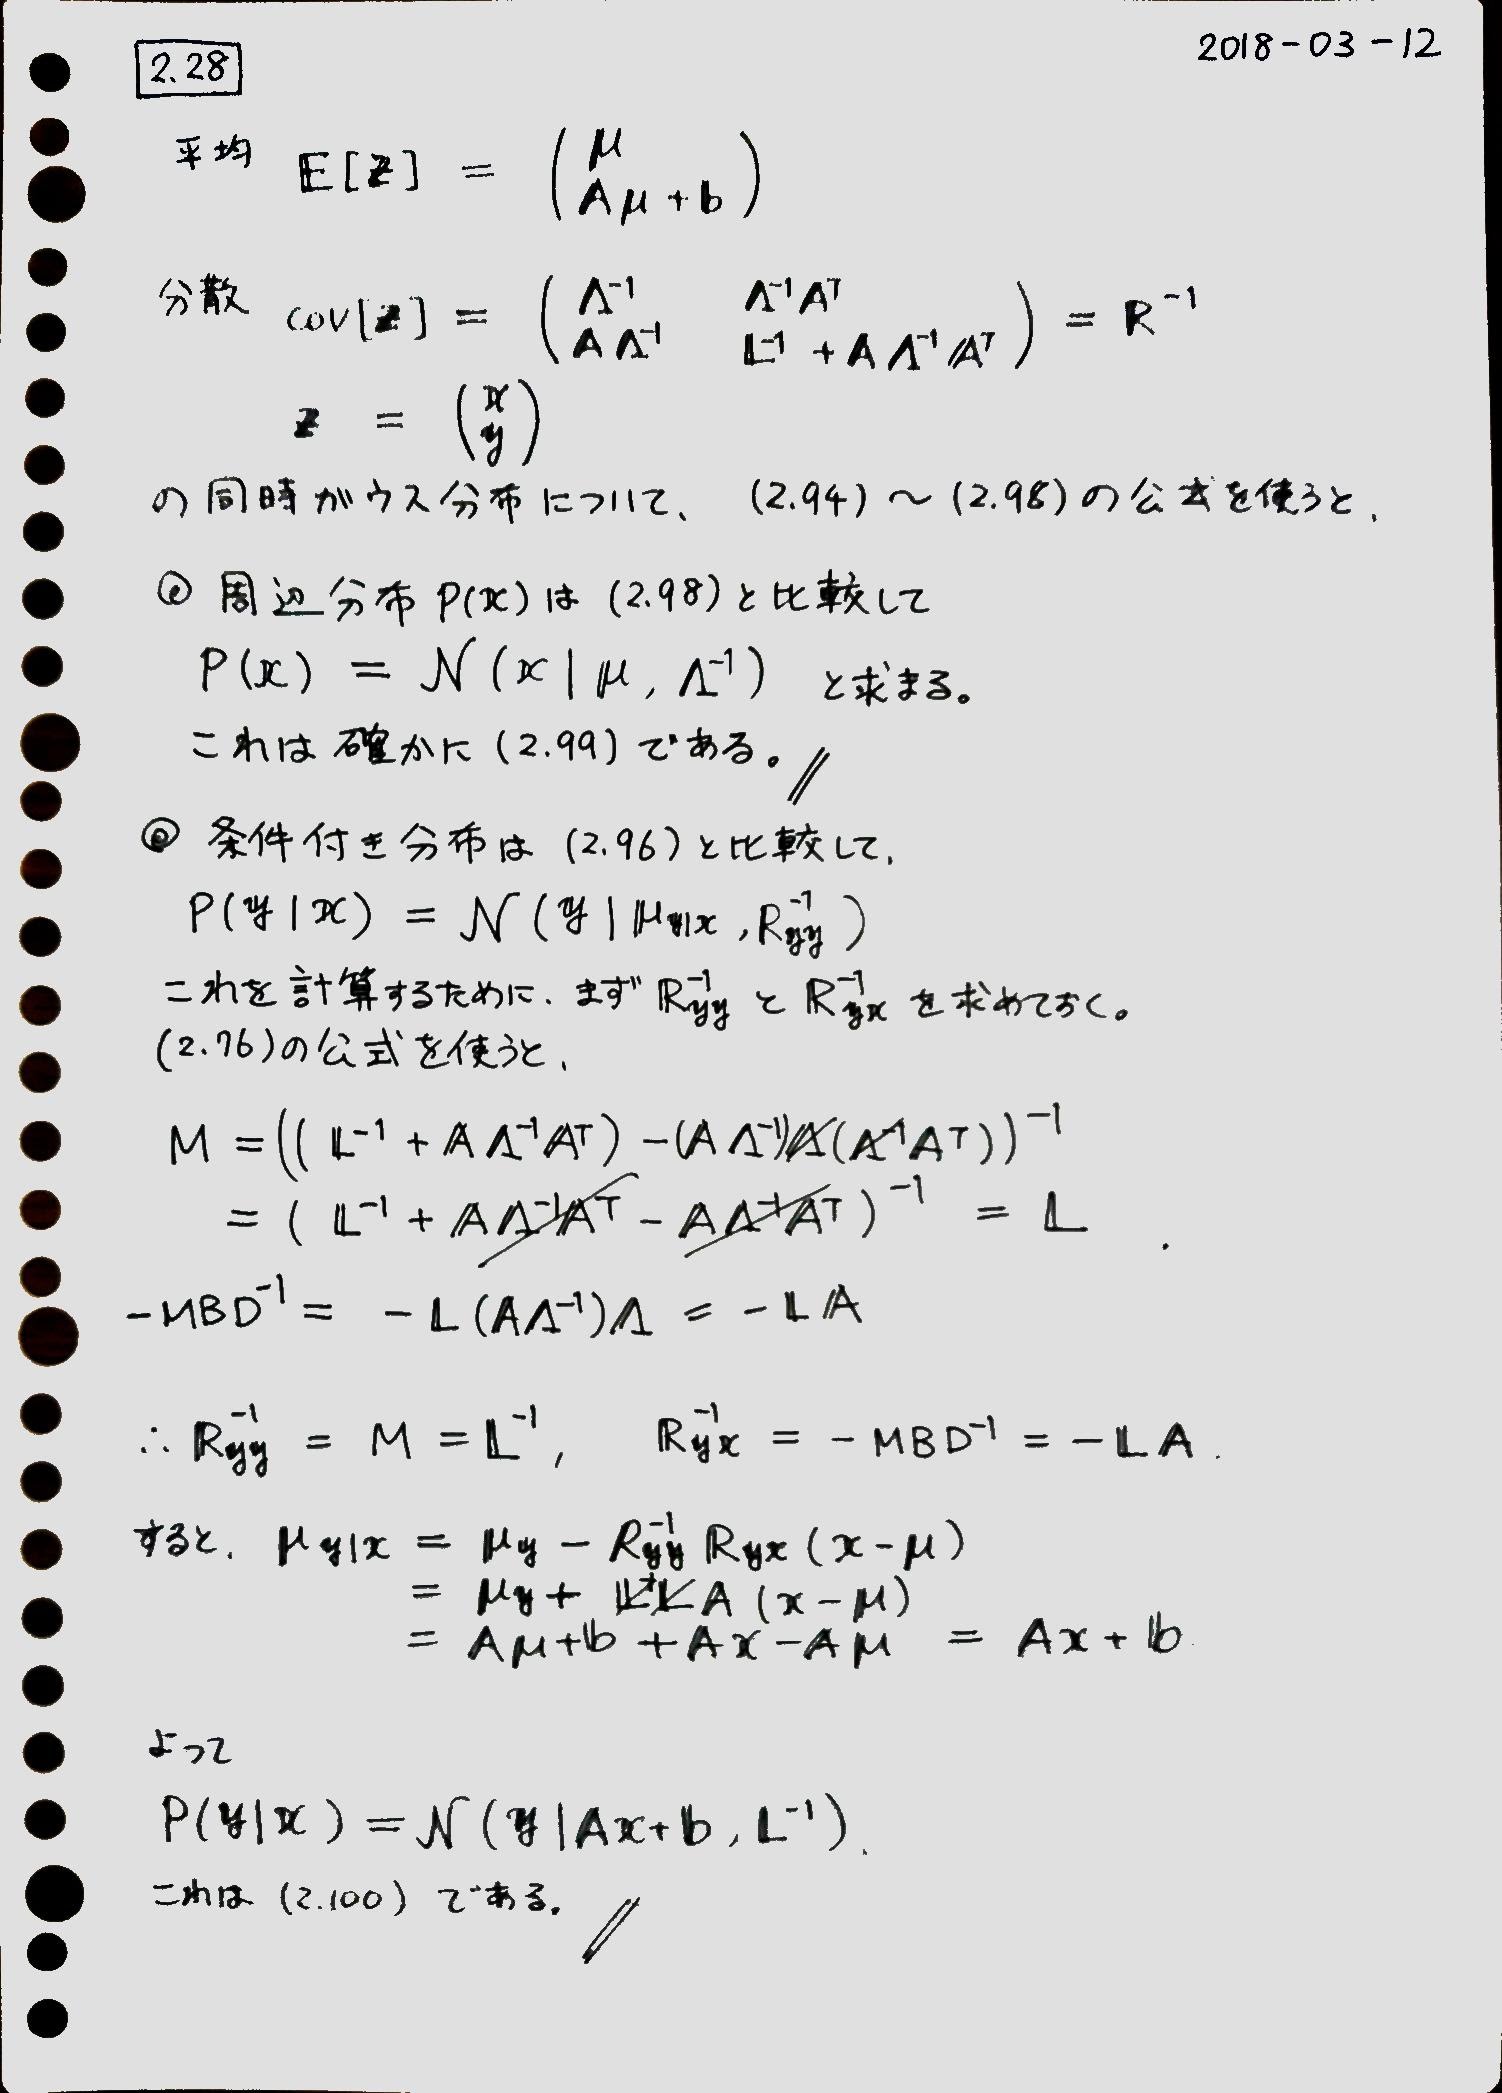 2.28
2018-03-12
平均 E[z] = ( μ
Aμ+b )
分散 cov[z] = ( Λ⁻¹ Λ⁻¹Aᵀ
AΛ⁻¹ L⁻¹ + AΛ⁻¹Aᵀ ) = R⁻¹
z = ( x
y )
の同時がウス分布について、 (2.94) ～ (2.98) の公式を使うと、
◎ 周辺分布 P(x) は (2.98) と比較して
P(x) = N(x | μ, Λ⁻¹) と求まる。
これは確かに (2.99) である。//
◎ 条件付き分布は (2.96) と比較して、
P(y|x) = N(y | μ_{y|x}, R_{yy}⁻¹)
これを計算するために、まず R_{yy}⁻¹ と R_{yx}⁻¹ を求めておく。
(2.76)の公式を使うと、
M = ((L⁻¹ + AΛ⁻¹Aᵀ) - (AΛ⁻¹)Λ(Λ⁻¹Aᵀ))⁻¹
= (L⁻¹ + AΛ⁻¹Aᵀ - AΛ⁻¹Aᵀ)⁻¹ = L .
-MBD⁻¹ = -L(AΛ⁻¹)Λ = -LA
∴ R_{yy}⁻¹ = M = L⁻¹, R_{yx}⁻¹ = -MBD⁻¹ = -LA.
すると、 μ_{y|x} = μ_y - R_{yy}⁻¹ R_{yx} (x-μ)
= μ_y + L⁻¹LA (x-μ)
= Aμ+b + Ax - Aμ = Ax + b.
よって
P(y|x) = N(y | Ax+b, L⁻¹).
これは (2.100) である。//